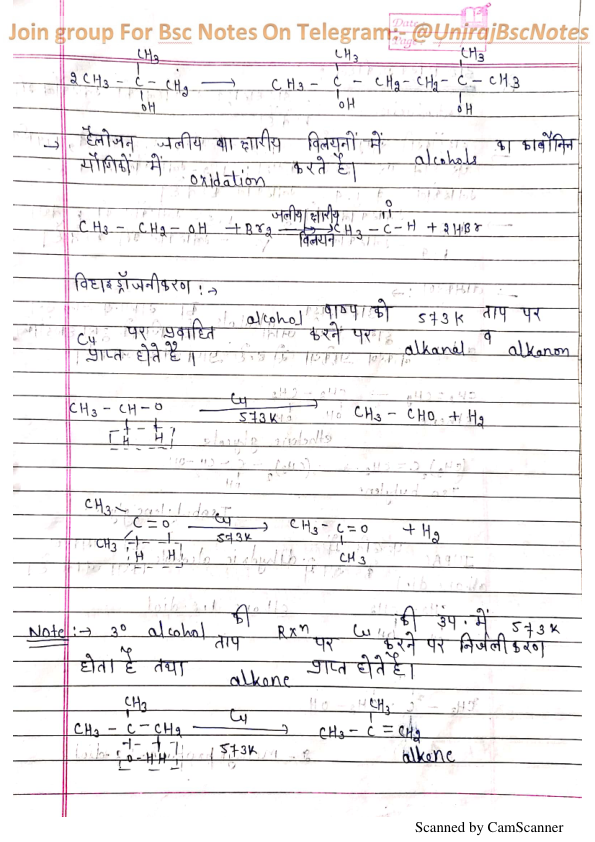 Join group For Bsc Notes On Telegram:- @UnirajBscNotes
Date
Page
CH3 CH3 CH3
2CH3 - C - CH2 ⟶ CH3 - C - CH2 - CH2 - C - CH3
OH OH OH
→ हैलोजन जलीय या क्षारीय विलयनों में alcohols का कार्बोनिल
यौगिकों में oxidation करते है।
O
CH3 - CH2 - OH + Br2 जलीय क्षारीय विलयन ⟶ CH3 - C - H + 2HBr
विहाइड्रोजनीकरण :→
alcohol वाष्प को 573K ताप पर
Cu पर प्रवाहित करने पर alkanal व alkanon
प्राप्त होते है।
CH3 - CH - O Cu 573K ⟶ CH3 - CHO + H2
H H
CH3
C = O Cu 573K ⟶ CH3 - C = O + H2
CH3 H H CH3
Note :→ 3° alcohol की Rxn Cu की उप. में 573K
ताप पर करने पर निर्जलीकरण
होता है तथा alkene प्राप्त होते है।
CH3 CH3
CH3 - C - CH2 Cu 573K ⟶ CH3 - C = CH2
O-H H alkene
Scanned by CamScanner